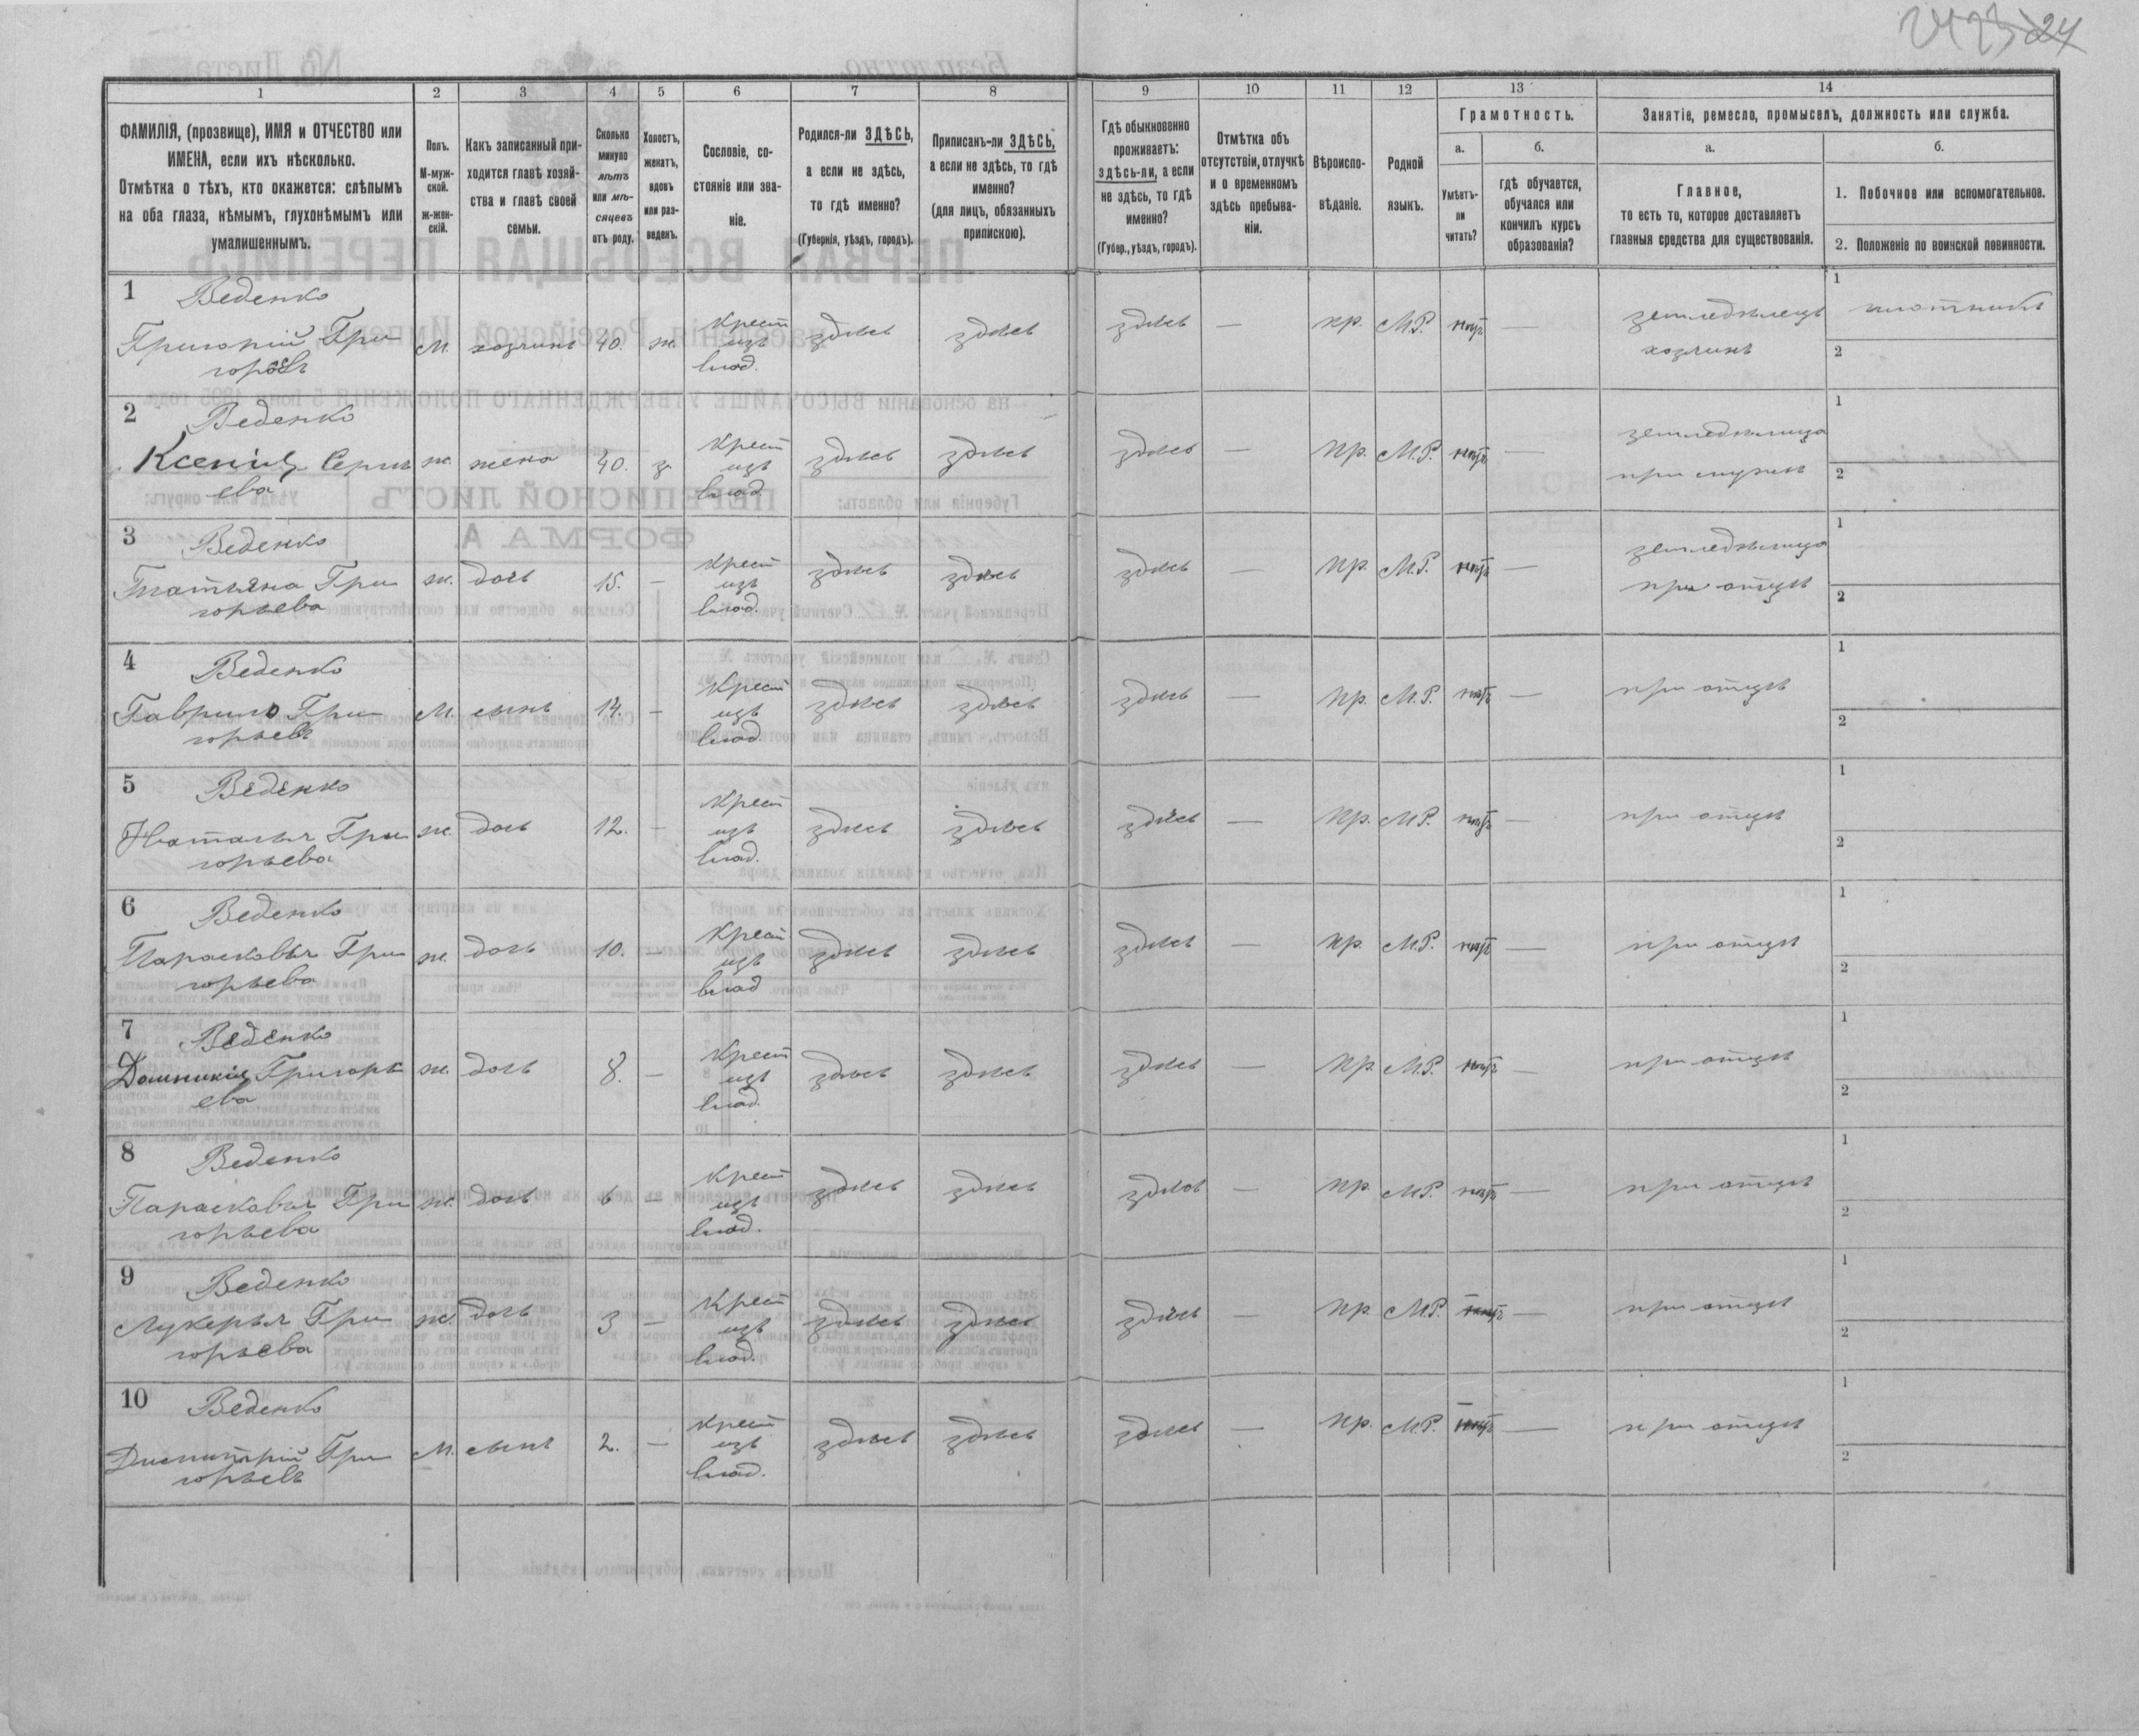 24 23 24
1 2 3 4 5 6 7 8 9 10 11 12 13 14
ФАМИЛІЯ, (прозвище), ИМЯ и ОТЧЕСТВО или
ИМЕНА, если ихъ нѣсколько.
Отмѣтка о тѣхъ, кто окажется: слѣпымъ
на оба глаза, нѣмымъ, глухонѣмымъ или
умалишеннымъ.
Полъ.
М-муж-
ской.
Ж-жен-
скій.
Какъ записанный при-
ходится главѣ хозяй-
ства и главѣ своей
семьи.
Сколько
минуло
лѣтъ
или мѣ-
сяцевъ
отъ роду.
Холостъ,
женатъ,
вдовъ
или раз-
веденъ.
Сословіе, со-
стояніе или зва-
ніе.
Родился-ли ЗДѢСЬ,
а если не здѣсь,
то гдѣ именно?
(Губернія, уѣздъ, городъ).
Приписанъ-ли ЗДѢСЬ,
а если не здѣсь, то гдѣ
именно?
(для лицъ, обязанныхъ
припискою).
Гдѣ обыкновенно
проживаетъ:
здѣсь-ли, а если
не здѣсь, то гдѣ
именно?
(Губер., уѣздъ, городъ).
Отмѣтка объ
отсутствіи, отлучкѣ
и о временномъ
здѣсь пребыва-
ніи.
Вѣроиспо-
вѣданіе.
Родной
языкъ.
Грамотность.
а.
Умѣетъ-
ли
читать?
б.
гдѣ обучается,
обучался или
кончилъ курсъ
образованія?
Занятіе, ремесло, промыселъ, должность или служба.
а.
Главное,
то есть то, которое доставляетъ
главныя средства для существованія.
б.
1. Побочное или вспомогательное.
2. Положеніе по воинской повинности.
1 Веденко
Григорій Гри
горьевъ
М. хозяинъ 40. ж. крест изъ влад. здѣсь здѣсь здѣсь — пр. М.Р. нѣтъ — земледѣлецъ хозяинъ
1 плотникъ
2
2 Веденко
Ксенія Сергѣ
ева
ж. жена 40. з. крест изъ влад. здѣсь здѣсь здѣсь — пр. М.Р. нѣтъ — земледѣлица при мужѣ
1
2
3 Веденко
Татьяна Гри
горьева
ж. дочь 15. — крест изъ влад. здѣсь здѣсь здѣсь — пр. М.Р. нѣтъ — земледѣлица при отцѣ
1
2
4 Веденко
Гаврило Гри
горьевъ
М. сынъ 14. — крест изъ влад. здѣсь здѣсь здѣсь — пр. М.Р. нѣтъ — при отцѣ
1
2
5 Веденко
Наталья Гри
горьева
ж. дочь 12. — крест изъ влад. здѣсь здѣсь здѣсь — пр. М.Р. нѣтъ — при отцѣ
1
2
6 Веденко
Парасковья Гри
горьева
ж. дочь 10. — крест изъ влад здѣсь здѣсь здѣсь — пр. М.Р. нѣтъ — при отцѣ
1
2
7 Веденко
Домникія Григорь
ева
ж. дочь 8. — крест изъ влад. здѣсь здѣсь здѣсь — пр. М.Р. нѣтъ — при отцѣ
1
2
8 Веденко
Парасковья Гри
горьева
ж. дочь 6 — крест изъ влад. здѣсь здѣсь здѣсь — пр. М.Р. нѣтъ — при отцѣ
1
2
9 Веденко
Лукерья Гри
горьева
ж. дочь 3 — крест изъ влад. здѣсь здѣсь здѣсь — пр. М.Р. нѣтъ — при отцѣ
1
2
10 Веденко
Дмитрій Гри
горьевъ
М. сынъ 2. — крест изъ влад. здѣсь здѣсь здѣсь — пр. М.Р. нѣтъ — при отцѣ
1
2